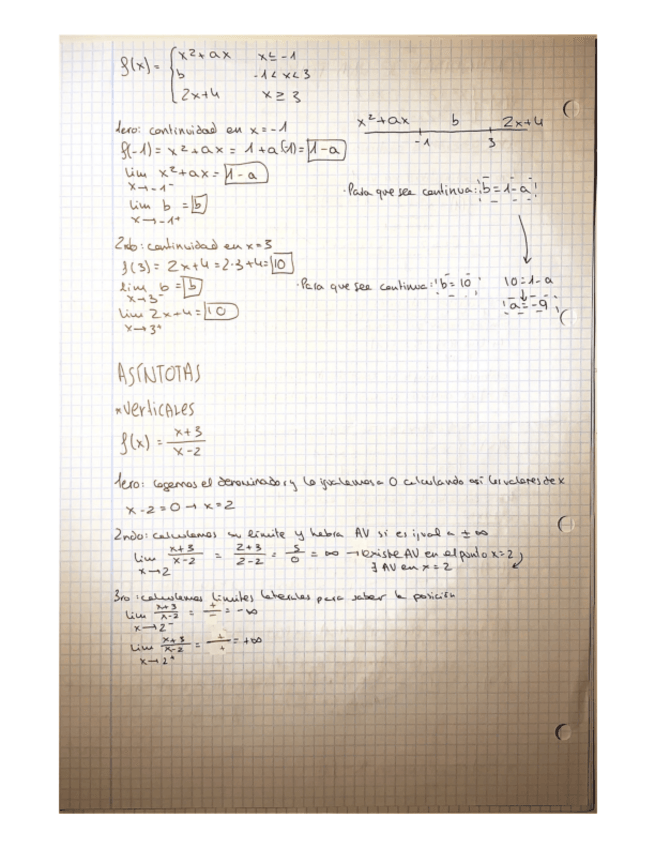 f(x) = { x²+ax x≤-1
b -1<x<3
2x+4 x≥3
1ero: continuidad en x=-1
x²+ax b 2x+4
-1 3
f(-1) = x²+ax = 1+a(-1) = 1-a
lim x²+ax = 1-a
x→-1⁻
·Para que sea continua: b=1-a
lim b = b
x→-1⁺
2ndo: continuidad en x=3
f(3) = 2x+4=2·3+4=10
lim b = b
x→3⁻
·Para que sea continua: b=10 10=1-a
a=-9
lim 2x+4=10
x→3⁺
ASÍNTOTAS
*VERTICALES
f(x) = x+3/x-2
1ero: cogemos el denominador y lo igualamos a 0 calculando así los valores de x
x-2=0→x=2
2ndo: calculamos su límite y habrá AV si es igual a ±∞
lim x+3/x-2 = 2+3/2-2 = 5/0 = ∞ → existe AV en el punto x=2
x→2 ∃ AV en x=2
3ro: calculamos límites laterales para saber la posición
lim x+3/x-2 = +/- = -∞
x→2⁻
lim x+3/x-2 = +/+ = +∞
x→2⁺